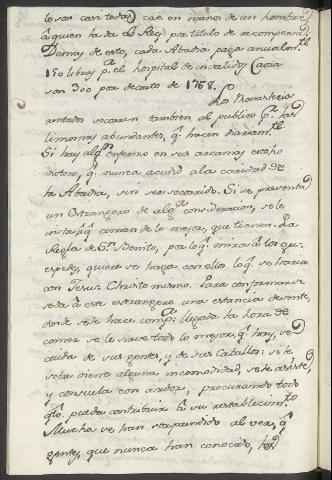 lo son casi todas) cae en manos de un hombre
à quien la da el Rey por titulo de recompensa.
Demas de esto, cada Abadia paga anualmte
150 libras pa el hospital de invalidos (acia
son 300 por decreto de 1768.
Los Monasterios
rentados socorren tambien al publico pr las
limosnas abundantes, q hacen diariamte
Si hay algn enfermo en sus cercanias es cosa
notoria, q nunca acudiò a la caridad de
la Abadia, sin ser socorrido. Si se presenta
un Estrangero de alga consideracion, se le
insta pa q coman de lo mejor, que tienen. La
Regla de Sn Benito, por lo q mira a los hues-
pedes, quiere se haga con ellos lo q se haria
con Jesu-Christo mismo. Para conformarse
se da à este estrangero una estancia decente,
donde se le hace compa: llegada la hora de
comer se le sirve todo lo mejor, q hay, se
cuida de sus gentes, y de sus Caballos: si le
sobreviene alguna incomodidad, se le asiste,
y consuela con ardor, procurando todo
qto pueda contribuir à su restablecimto
Mucho se han sorprendido al ver, q
gentes, que nunca han conocido, los